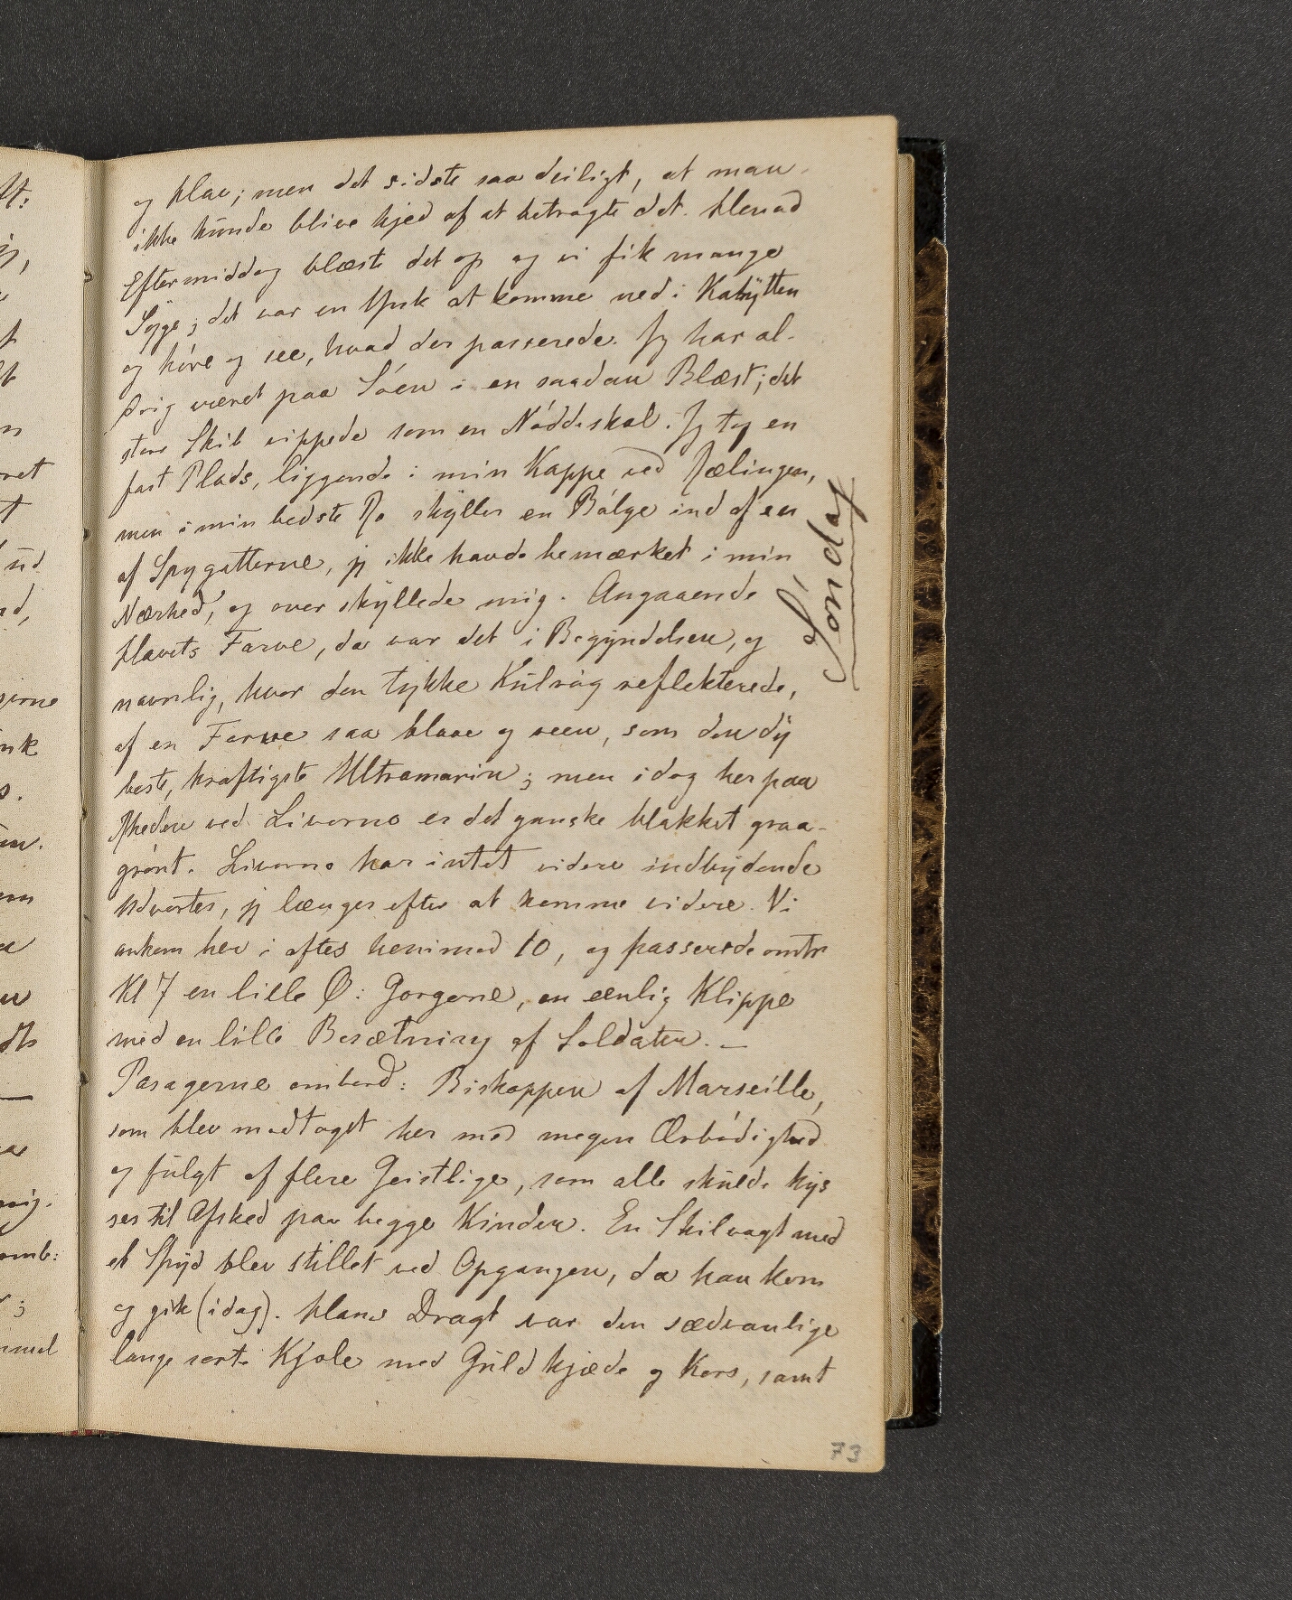 og Hav; men det sidste saa deiligt, at man
ikke kunde blive kjed af at betragte det. Henad
Eftermiddag blæste det op og vi fik mange
Syge; det var en Ynk at komme ned i Kahytten
og høre og see, hvad der passerede. Jeg har al-
drig været paa Søen i en saadan Blæst; det
store Skib vippede som en Nøddeskal. Jeg tog en
fast Plads, liggende i min Kappe ved Rælingen,
men i min bedste Ro skyller en Bølge ind af en
af Spygatterne, jeg ikke havde bemærket i min
Nærhed, og over skyllede mig. Angaaende
Havets Farve, da var det i Begyndelsen, og
navnlig, hvor den tykke Kulrøg reflekterede,
af en Farve saa blaae og reen, som den dy
beste, kraftigste Ultramarin; men idag her paa
Rheden ved Livorno er det ganske blakket graa-
grønt. Livorno har intet videre indbydende
Udvortes, jeg længes efter at komme videre. Vi
ankom her i aftes henimod 10, og passerede omtr
Kl 7 en lille Ø: Gorgone, en eenlig Klippe
med en lille Besætning af Soldater. —
Pasagerne ombord: Biskoppen af Marseille,
som blev modtaget her med megen Ærbødighed
og fulgt af flere Geistlige, som alle skulde kys
ses til Afsked paa begge Kinder. En Skilvagt med
et Spyd blev stillet ved Opgangen, da han kom
og gik (idag). Hans Dragt var den sædvanlige
lange sorte Kjole med Guldkjæde og Kors, samt
Søndag
73